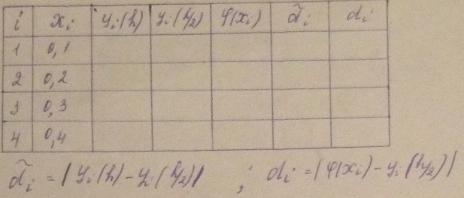 i xi yi(h) yi(h/2) φ(xi) d̃i di
1 0,1
2 0,2
3 0,3
4 0,4
d̃i = |yi(h) - yi(h/2)| ; di = |φ(xi) - yi(h/2)|